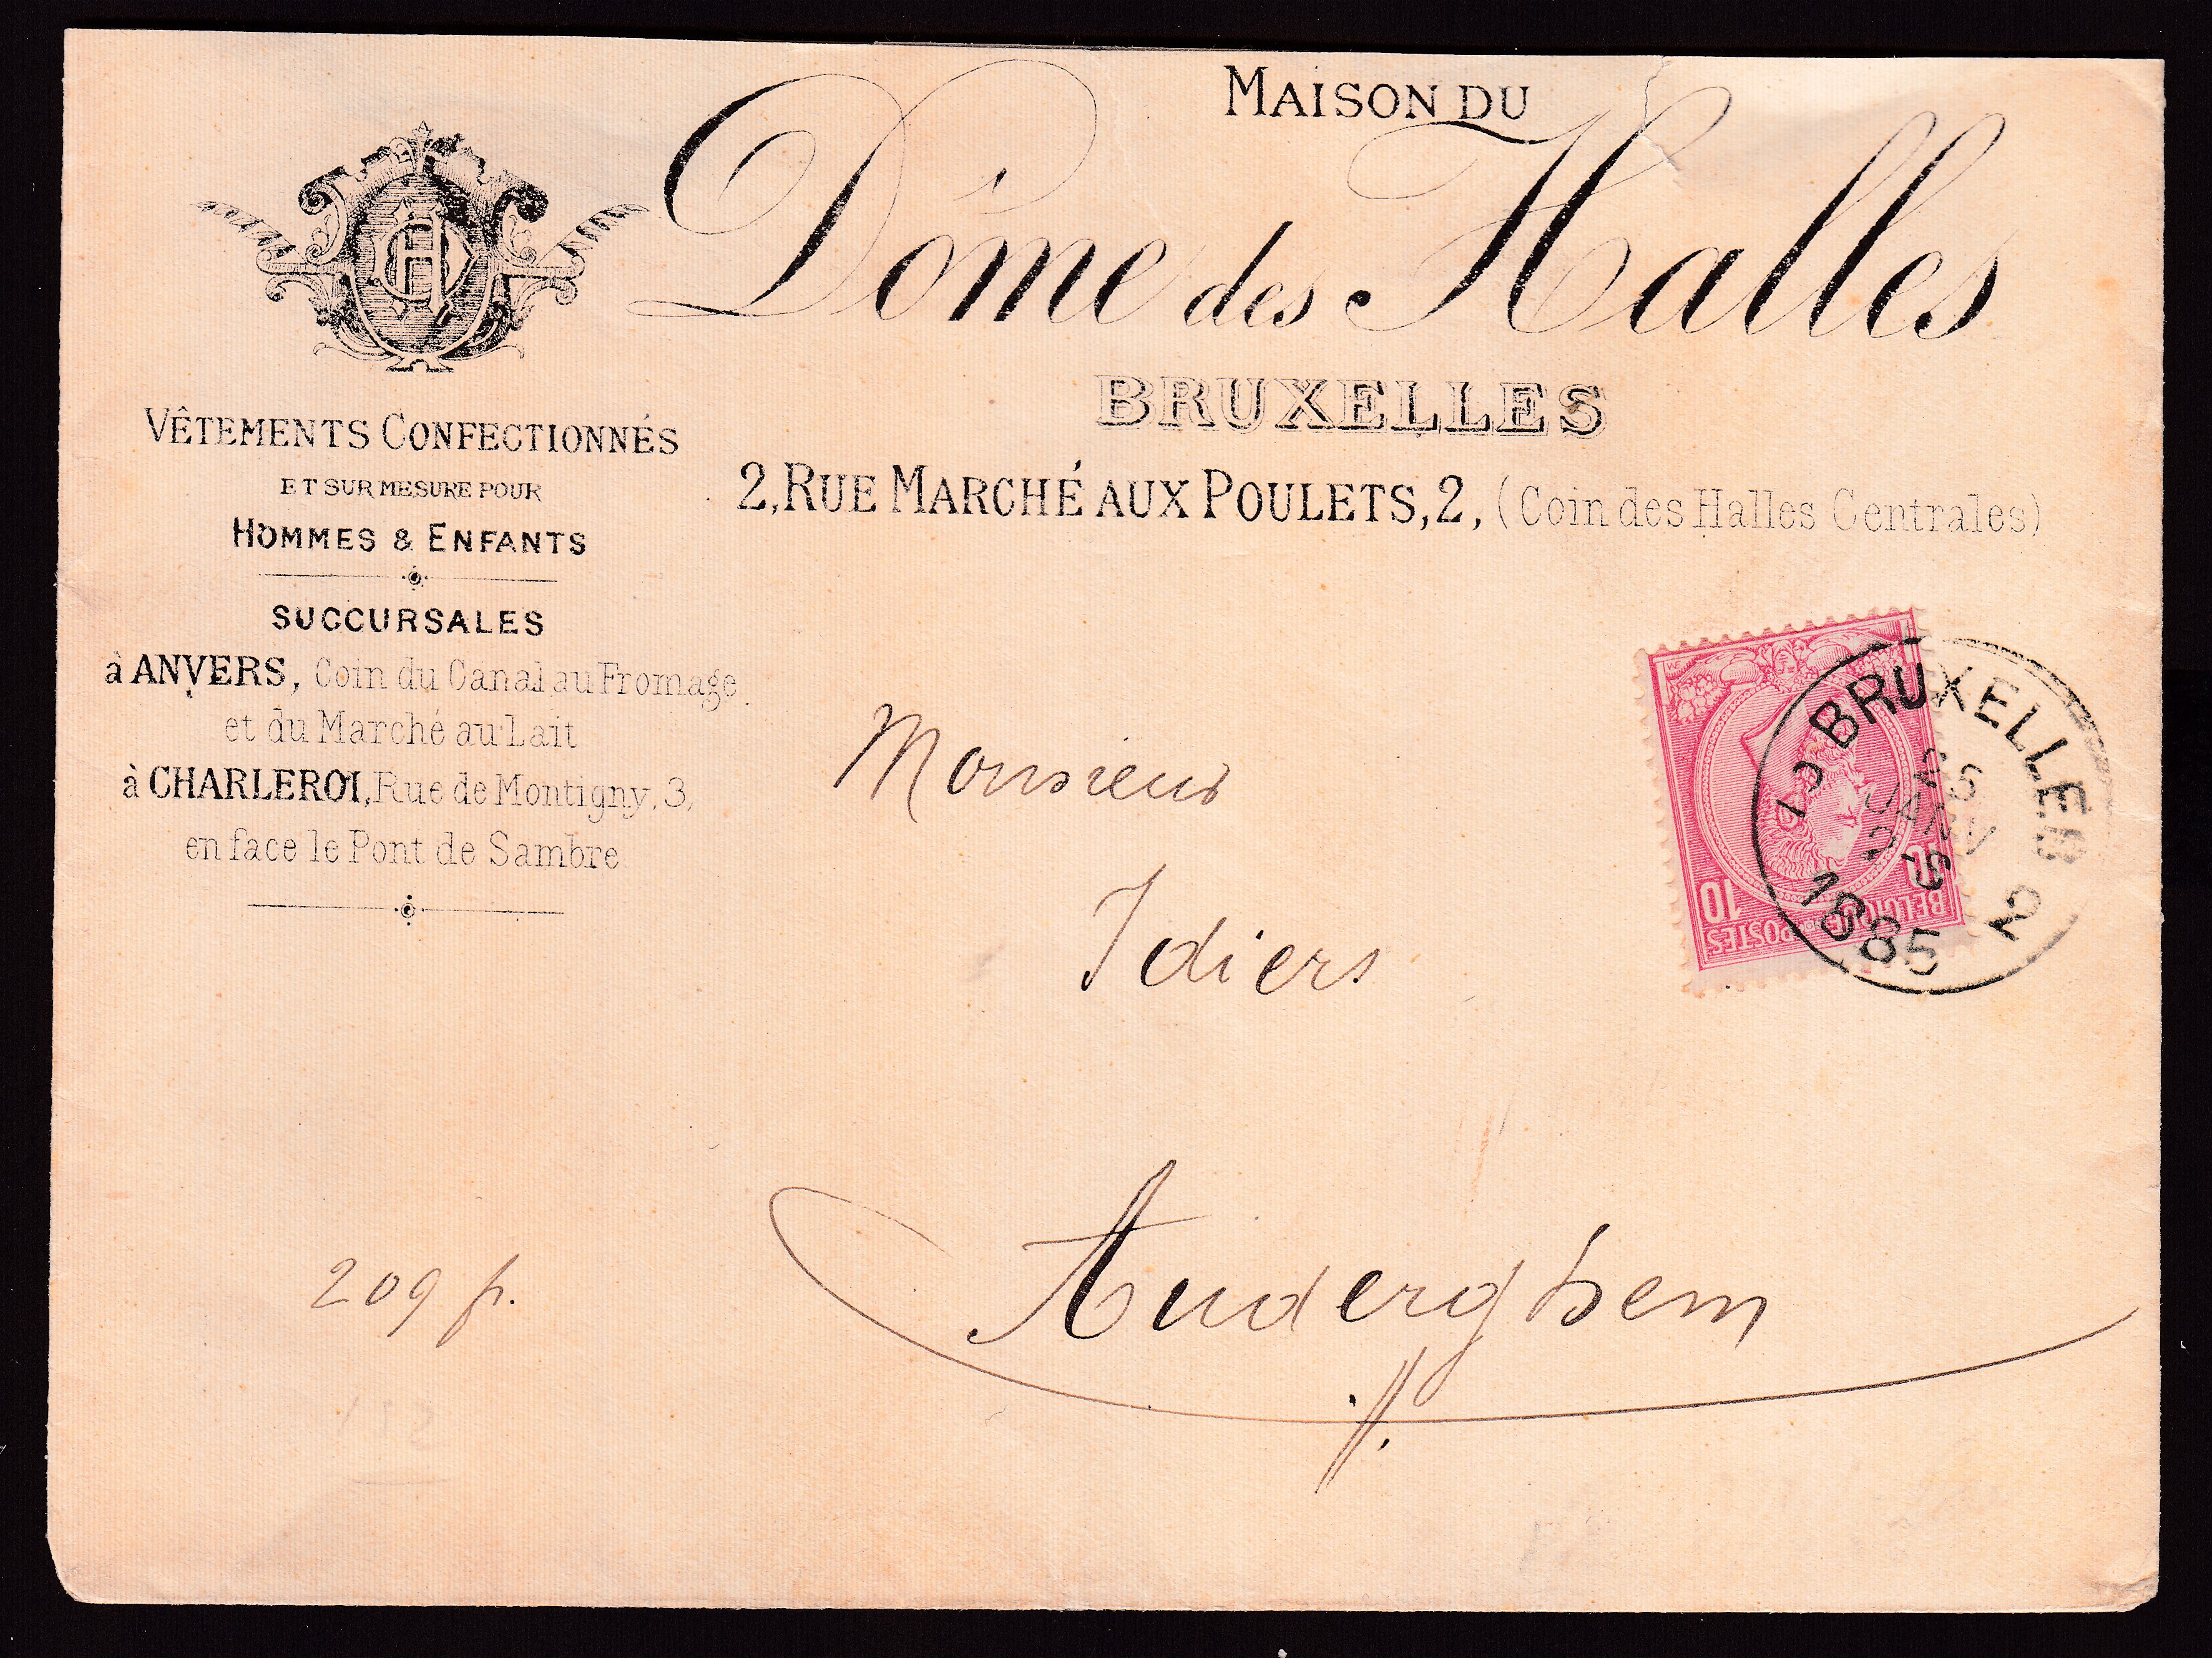 MAISON DU
Dôme des Halles
BRUXELLES
2, RUE MARCHÉ AUX POULETS, 2, (Coin des Halles Centrales)
VÊTEMENTS CONFECTIONNÉS
ET SUR MESURE POUR
HOMMES & ENFANTS
SUCCURSALES
à ANVERS, Coin du Canal au Fromage
et du Marché au Lait
à CHARLEROI, Rue de Montigny, 3,
en face le Pont de Sambre
BRUXELLES
JANV
1885
2
10 10
POSTES BELGIQUE
Monsieur
Idiers
Auderghem
209 fr.